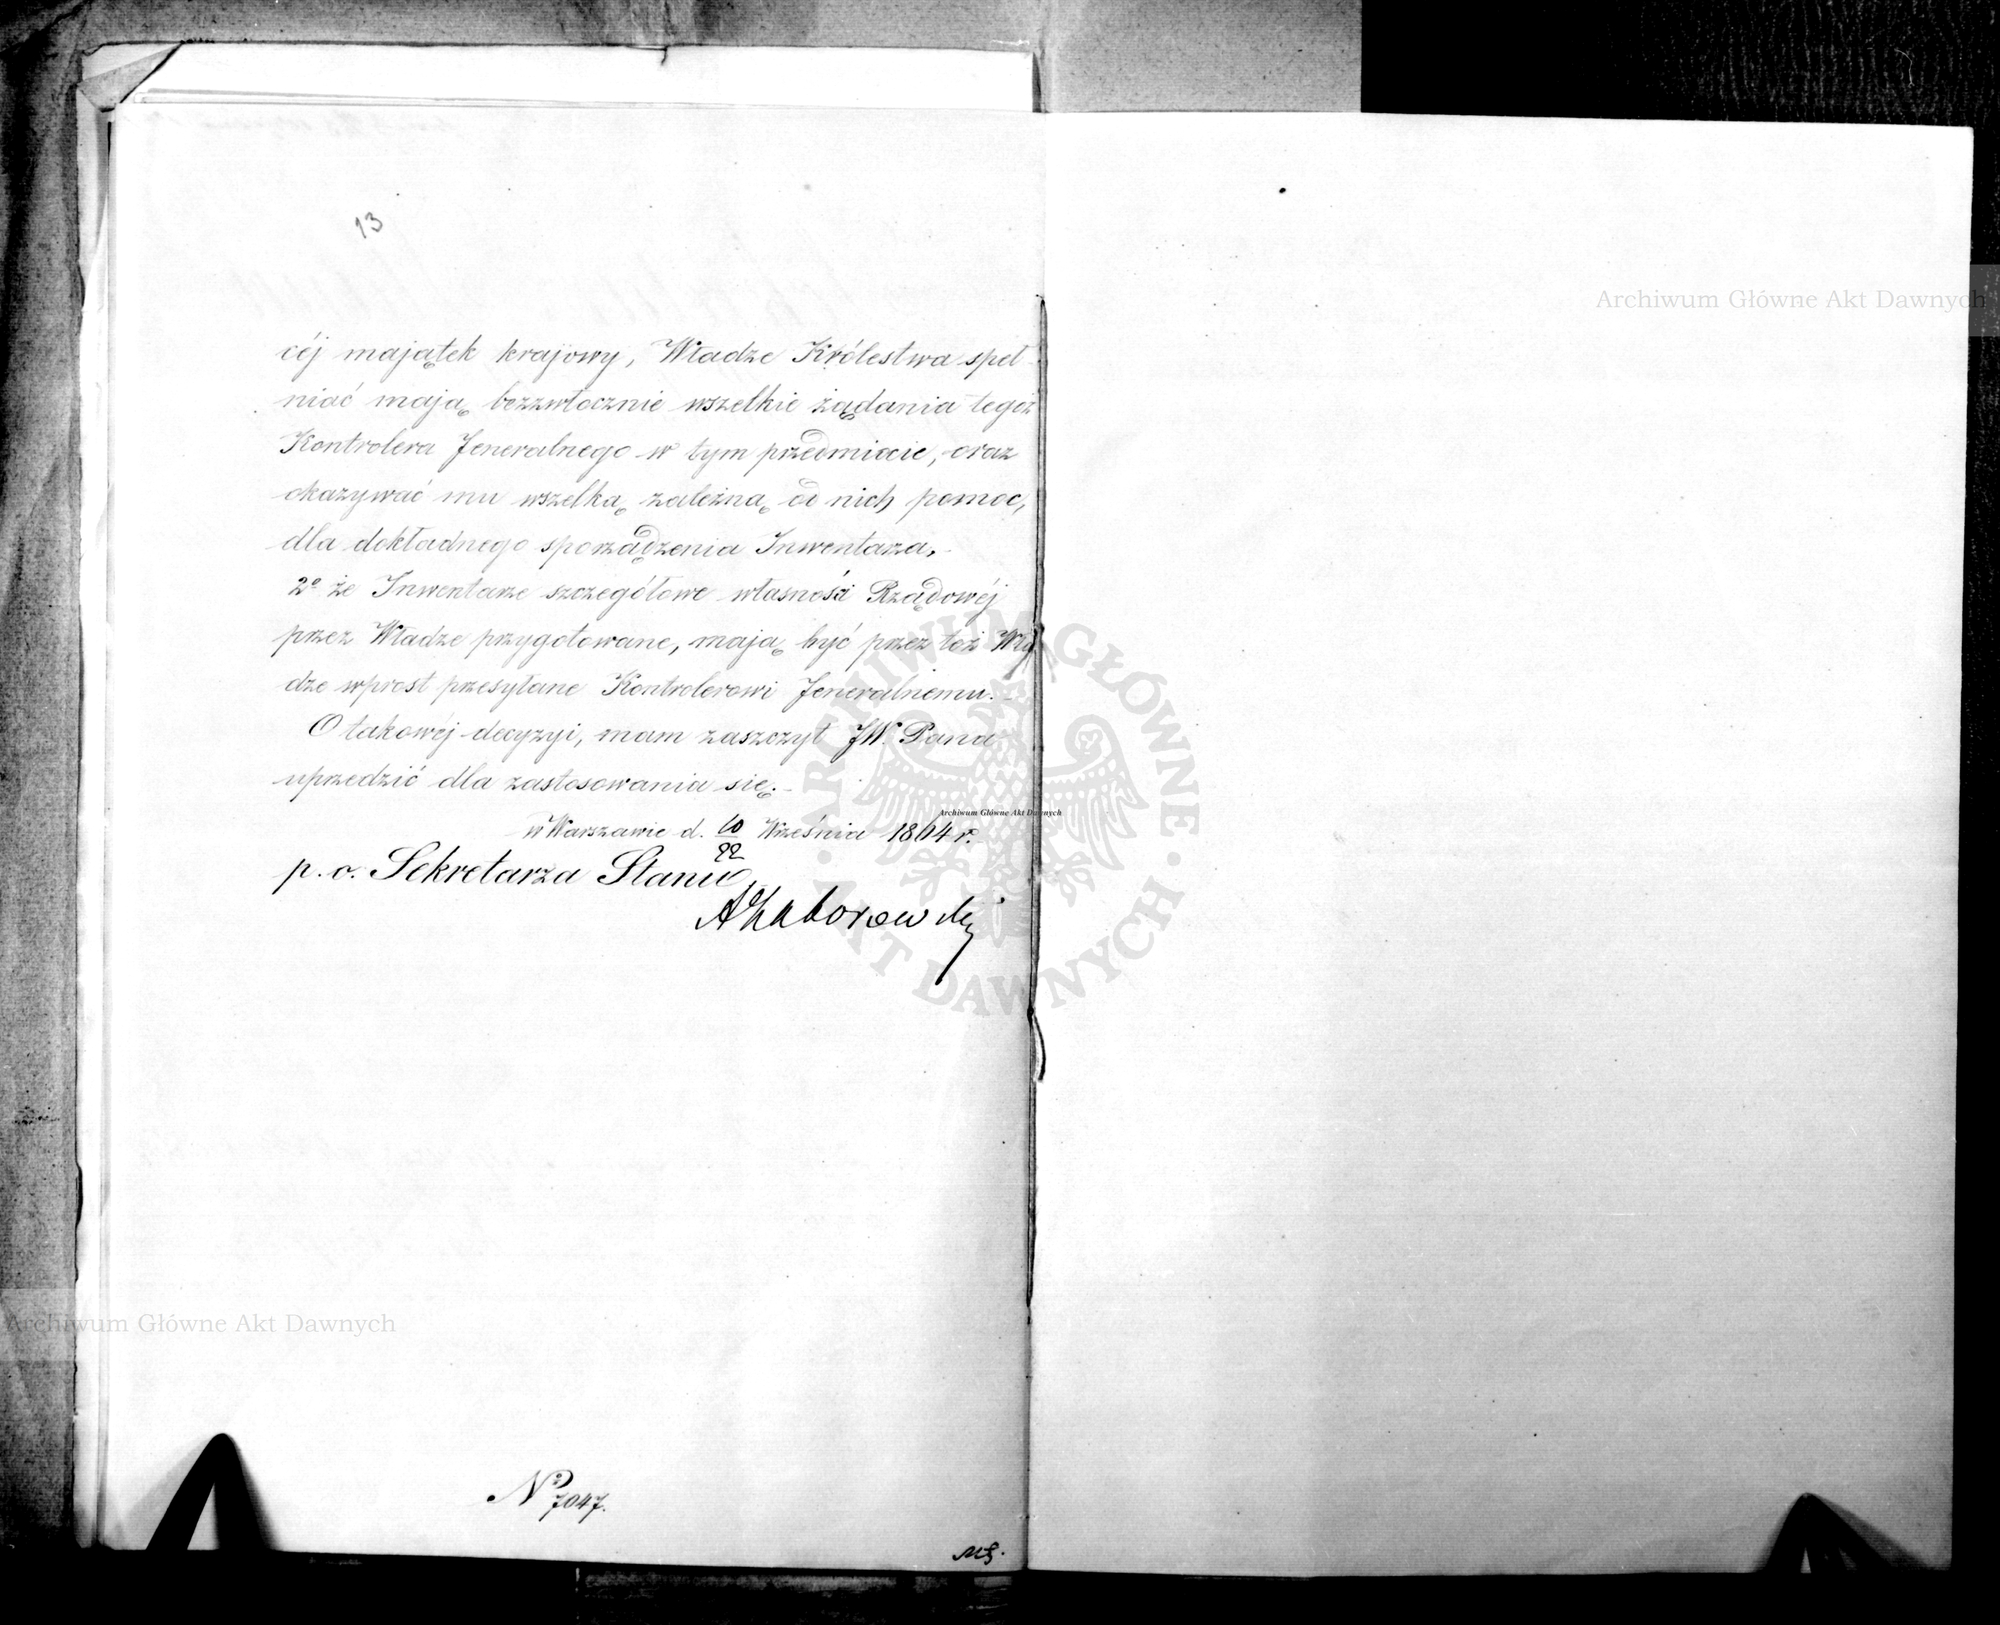 13
céj majątek krajowy, Władze Królestwa speł-
niać mają bezzwłocznie wszelkie żądania tegoż
Kontrolera Jeneralnego w tym przedmiocie, oraz
okazywać mu wszelką zależną od nich pomoc,
dla dokładnego sporządzenia Inwentarza.
2o że Inwentarze szczegółowe własności Rządowéj
przez Władze przygotowane, mają być przez też Wła
dze wprost przesyłane Kontrolerowi Jeneralnemu.
O takowéj decyzyi, mam zaszczyt JW. Pana
uprzedzić dla zastosowania się.
w Warszawie d. 10/22 Września 1864 r.
p. o. Sekretarza Stanu
No 7047.
MS.
Archiwum Główne Akt Dawnych
Archiwum Główne Akt Dawnych
Archiwum Główne Akt Dawnych
ARCHIWUM GŁÓWNE AKT DAWNYCH